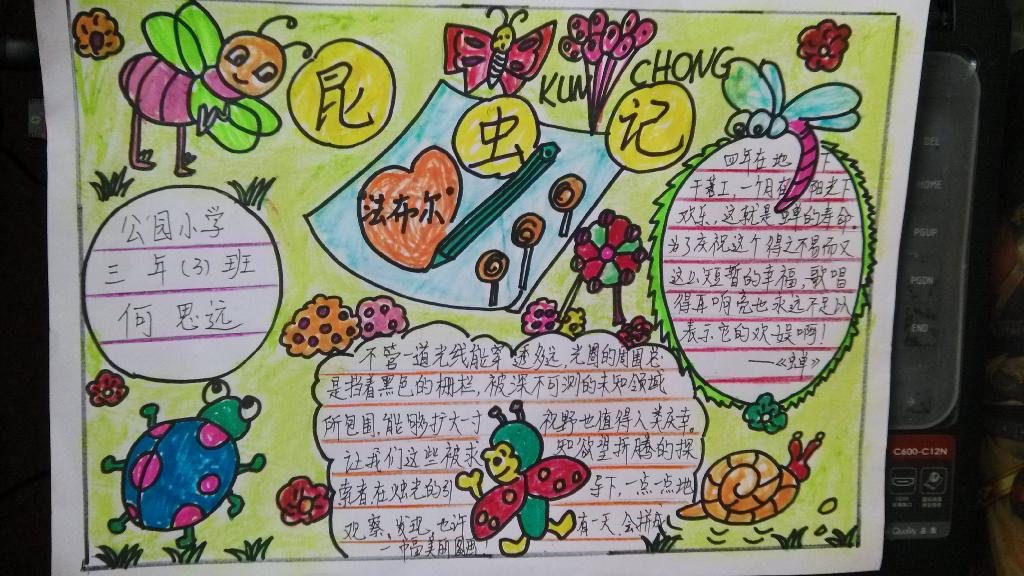 昆
虫
记
KUN CHONG
法布尔
公园小学
三年(3)班
何思远
四年在地下
干苦工,一个月在阳光下
欢乐,这就是蝉的寿命
为了庆祝这个得之不易而又
这么短暂的幸福,歌唱
得再响亮也永远不足以
表示它的欢娱啊!
——《蝉》
不管一道光线能穿透多远,光圈的周围总
是挡着黑色的栅栏,被深不可测的未知领域
所包围,能够扩大一寸视野也值得人类庆幸。
让我们这些被求知欲望折腾的探
索者在烛光的引导下,一点一点地
观察、发现,也许有一天,会拼成
一幅美丽图画!
DEL
HOME
PGUP
PGDN
END
C600-C12N
Quality